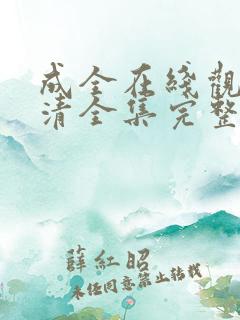 成全在綫觀
清全集完整
薛紅昭
未经同意禁止转载